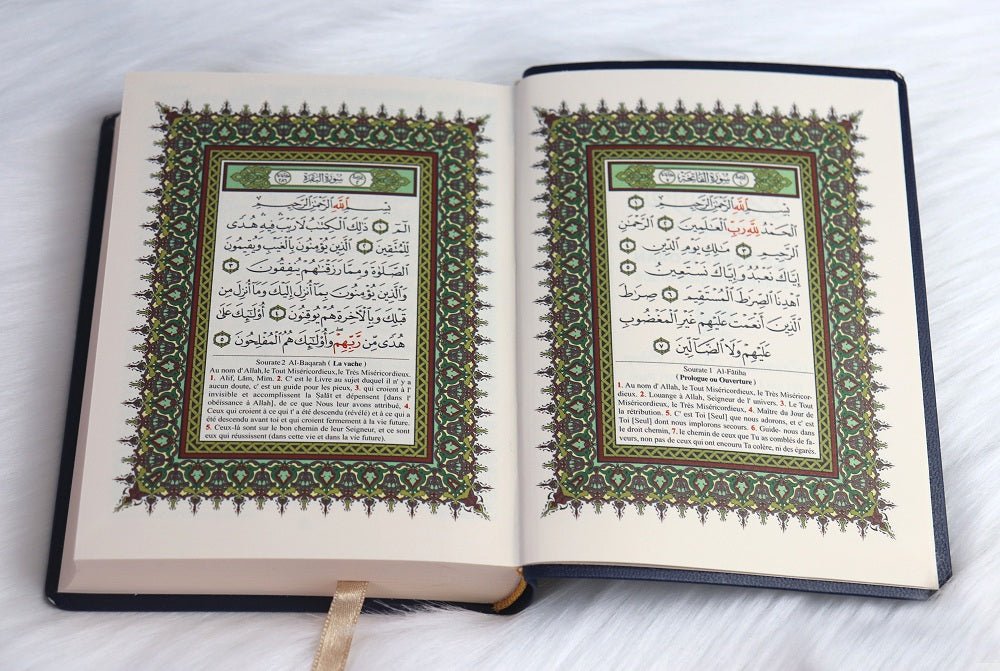 سُورَةُ الفَاتِحَةِ
بِسْمِ ٱللَّهِ ٱلرَّحْمَٰنِ ٱلرَّحِيمِ ١
ٱلْحَمْدُ لِلَّهِ رَبِّ ٱلْعَٰلَمِينَ ٢ ٱلرَّحْمَٰنِ
ٱلرَّحِيمِ ٣ مَٰلِكِ يَوْمِ ٱلدِّينِ ٤
إِيَّاكَ نَعْبُدُ وَإِيَّاكَ نَسْتَعِينُ ٥
ٱهْدِنَا ٱلصِّرَٰطَ ٱلْمُسْتَقِيمَ ٦ صِرَٰطَ
ٱلَّذِينَ أَنْعَمْتَ عَلَيْهِمْ غَيْرِ ٱلْمَغْضُوبِ
عَلَيْهِمْ وَلَا ٱلضَّآلِّينَ ٧
Sourate 1 Al-Fâtiha
(Prologue ou Ouverture)
1. Au nom d' Allah, le Tout Miséricordieux, le Très Miséricor-
dieux. 2. Louange à Allah, Seigneur de l' univers. 3. Le Tout
Miséricordieux, le Très Miséricordieux, 4. Maître du Jour de
la rétribution. 5. C' est Toi [Seul] que nous adorons, et c' est
Toi [Seul] dont nous implorons secours. 6. Guide- nous dans
le droit chemin, 7. le chemin de ceux que Tu as comblés de fa-
veurs, non pas de ceux qui ont encouru Ta colère, ni des égarés.
سُورَةُ البَقَرَةِ
بِسْمِ ٱللَّهِ ٱلرَّحْمَٰنِ ٱلرَّحِيمِ
الٓمٓ ١ ذَٰلِكَ ٱلْكِتَٰبُ لَا رَيْبَ فِيهِ هُدًى
لِّلْمُتَّقِينَ ٢ ٱلَّذِينَ يُؤْمِنُونَ بِٱلْغَيْبِ وَيُقِيمُونَ
ٱلصَّلَوٰةَ وَمِمَّا رَزَقْنَٰهُمْ يُنفِقُونَ ٣
وَٱلَّذِينَ يُؤْمِنُونَ بِمَآ أُنزِلَ إِلَيْكَ وَمَآ أُنزِلَ مِن
قَبْلِكَ وَبِٱلْءَاخِرَةِ هُمْ يُوقِنُونَ ٤ أُو۟لَٰٓئِكَ عَلَىٰ
هُدًى مِّن رَّبِّهِمْ وَأُو۟لَٰٓئِكَ هُمُ ٱلْمُفْلِحُونَ ٥
Sourate 2 Al-Baqarah ( La vache )
Au nom d' Allah, le Tout Miséricordieux, le Très Miséricordieux.
1. Alif, Lâm, Mim. 2. C' est le Livre au sujet duquel il n' y a
aucun doute, c' est un guide pour les pieux, 3. qui croient à l'
invisible et accomplissent la Salât et dépensent [dans l'
obéissance à Allah], de ce que Nous leur avons attribué, 4.
Ceux qui croient à ce qui t' a été descendu (révélé) et à ce qui a
été descendu avant toi et qui croient fermement à la vie future.
5. Ceux-là sont sur le bon chemin de leur Seigneur, et ce sont
eux qui réussissent (dans cette vie et dans la vie future).